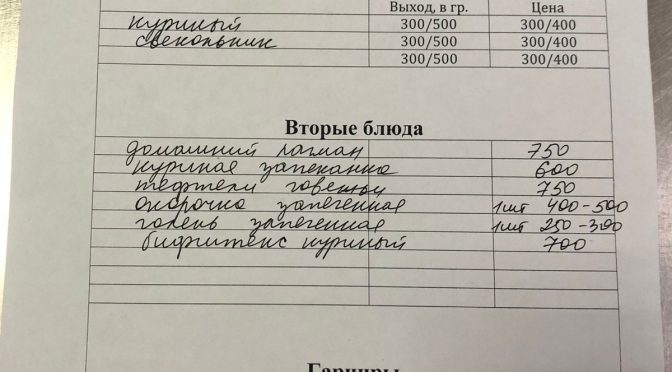 Выход, в гр. Цена
куриный 300/500 300/400
свекольник 300/500 300/400
300/500 300/400
Вторые блюда
домашний лагман 750
куриная запеканка 600
тефтели говяжьи 750
окорочка запеченная 1шт 400-500
голень запеченная 1шт 250-300
бифштекс куриный 700
Гарниры